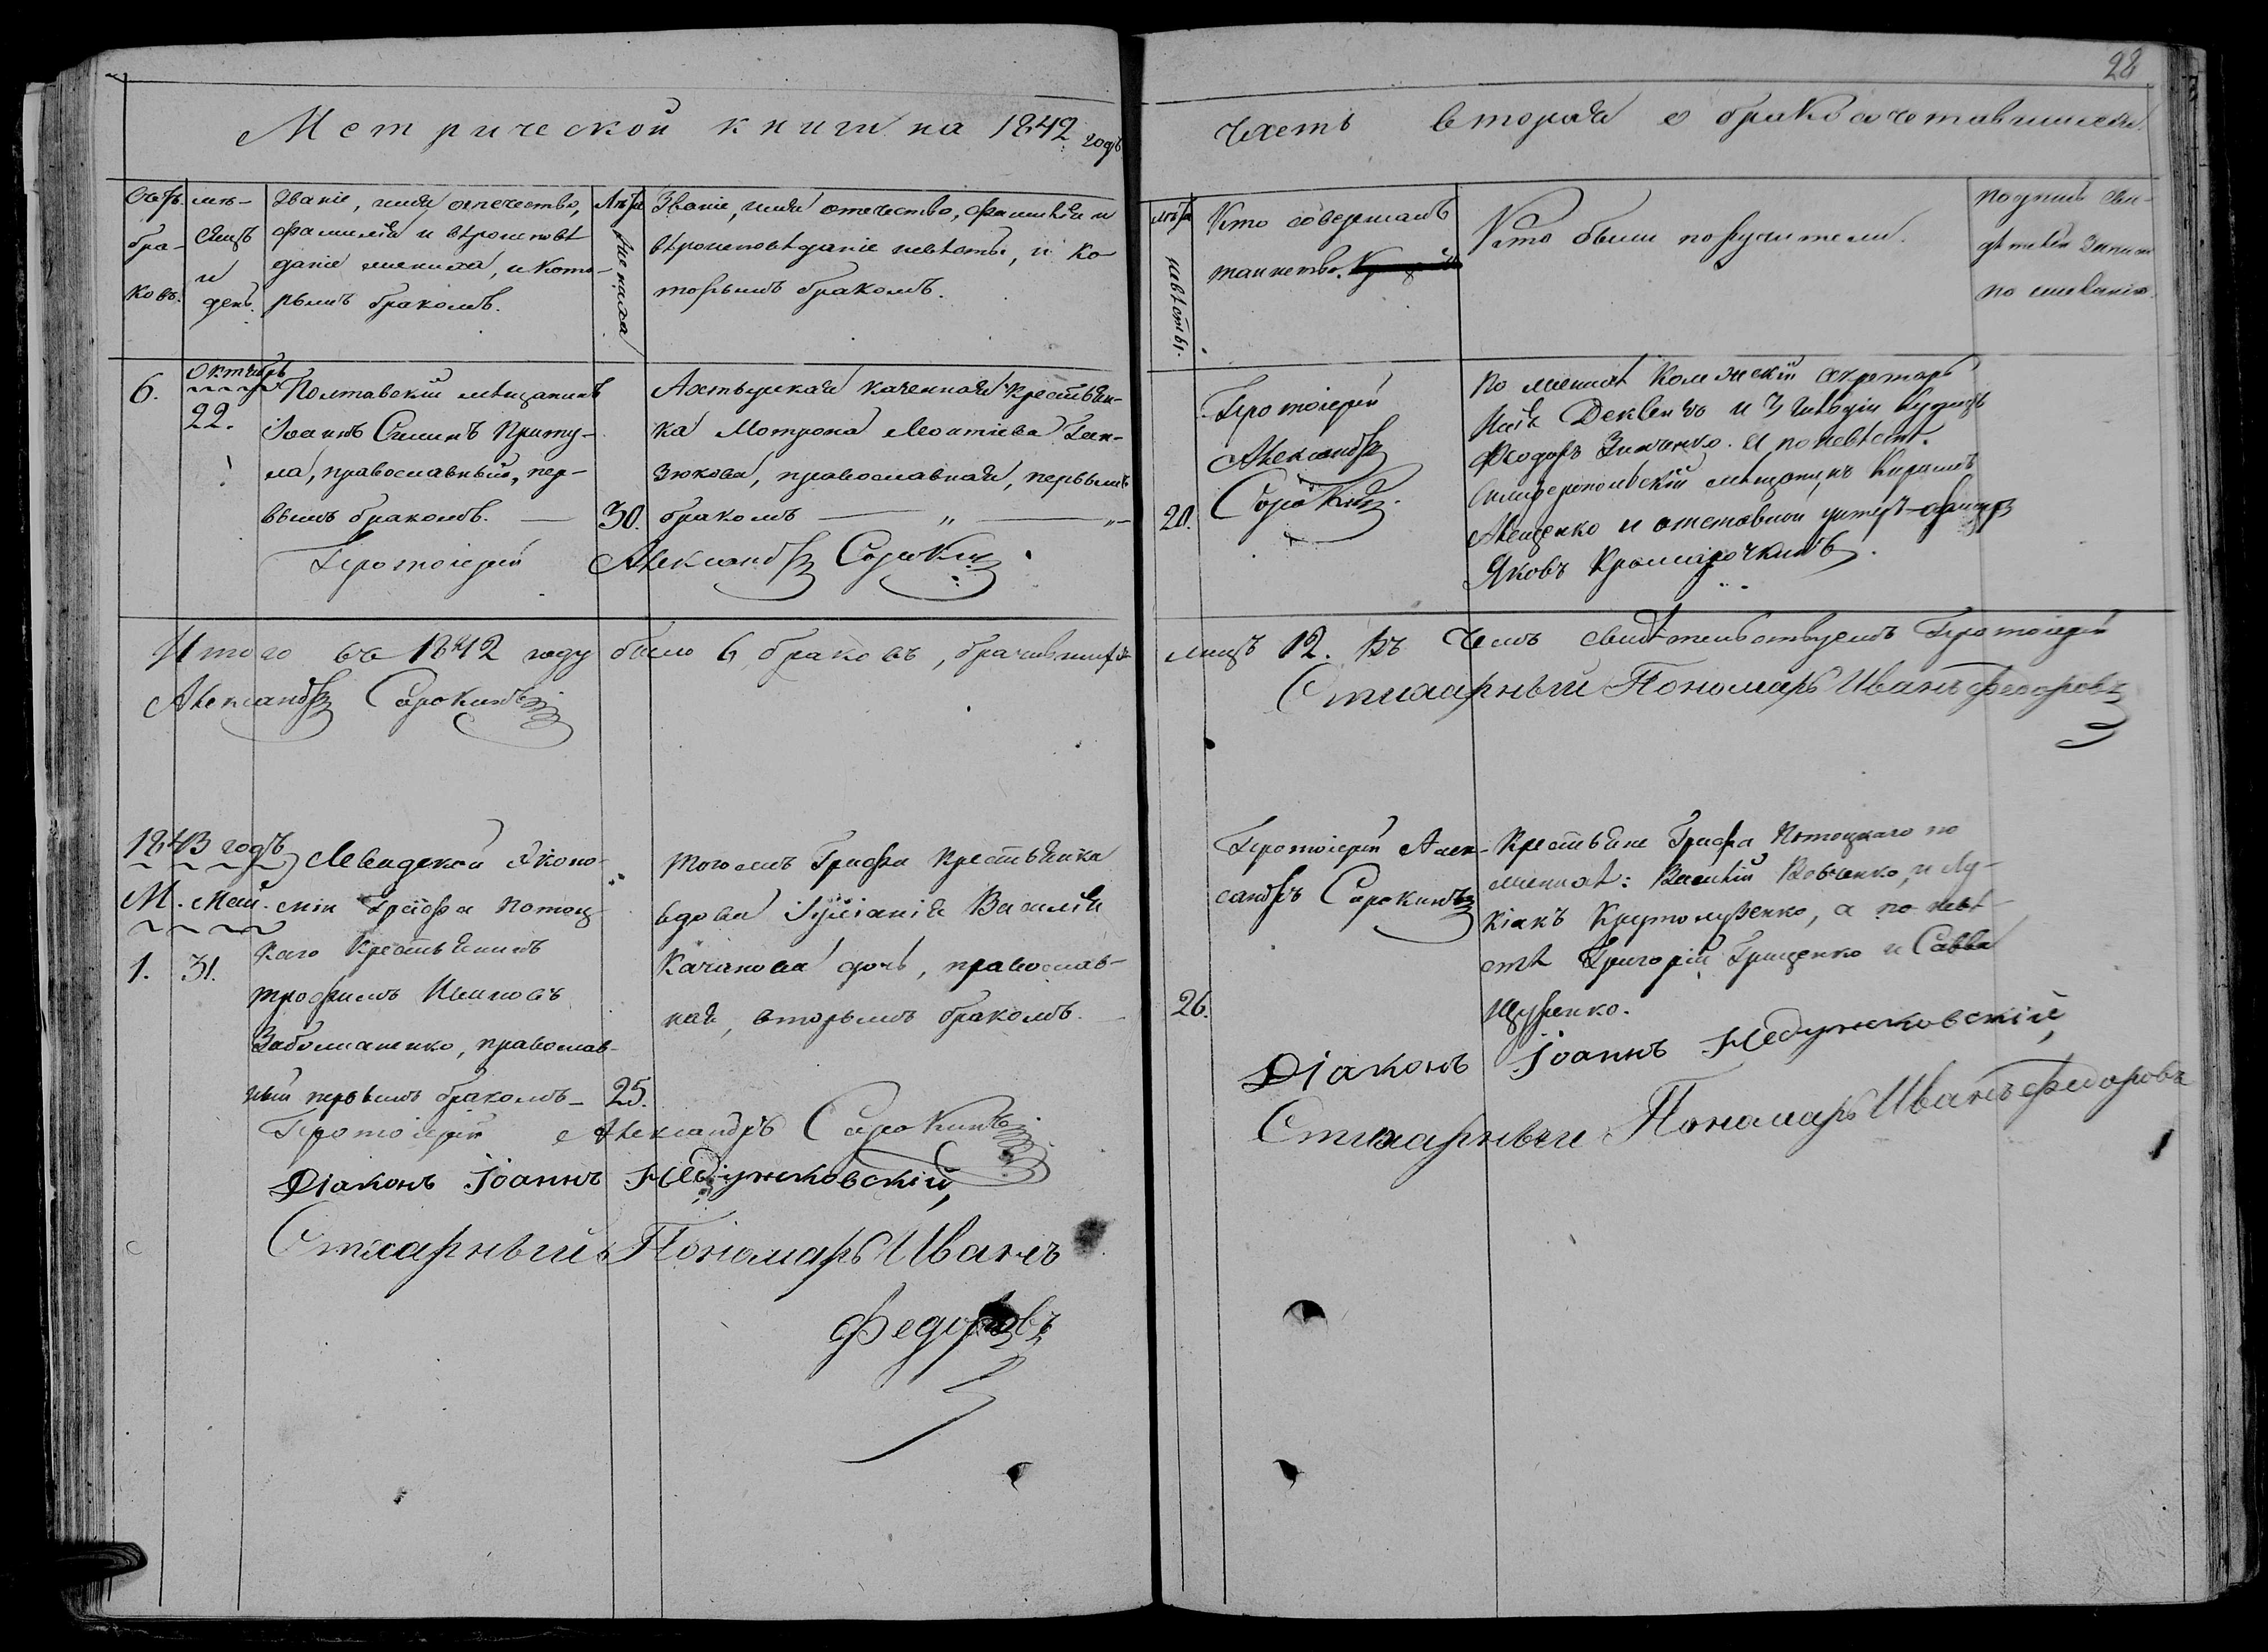 28
Метрической книги на 1842 годъ
Часть вторая о бракосочетавшихся.
Счетъ браковъ.
мѣсяцъ и день.
Званіе, имя, отечество,
фамилія и вѣроисповѣ
даніе жениха, и кото-
рымъ бракомъ.
Лѣта жениха
Званіе, имя отечество, фамилія и
вѣроисповѣданіе невѣсты, и ко
торымъ бракомъ.
лѣта невѣсты.
Кто совершалъ
таинство.
Кто были поручители.
по желанію.
6.
Октябрь
22.
Полтавскій мѣщанинъ
Іоаннъ Приту-
ла, православный, пер-
вымъ бракомъ.
30.
Ахтырская казенная крестьян-
ка Мотрона
зюкова, православная, первымъ
бракомъ
20.
Протоіерей
Александръ
Сорокинъ.
По женихѣ Коллежскій Секретарь
и
Феодоръ Зинченко. А по невѣстѣ.
Симферопольскій мѣщанинъ
и отставной унтеръ-офицеръ
Яковъ
Протоіерей Александръ Сорокинъ
Итого въ 1842 году было 6 браковъ, брачившихся
лицъ 12. Въ чемъ свидѣтельствуемъ Протоіерей
Александръ Сорокинъ
Стихарный Пономарь Иванъ Федоровъ
1843 годъ
М. Май.
1. 31.
Мевидской эконо-
міи Графа Потоц-
каго крестьянинъ
трофимъ Ивановъ
православ-
ный первымъ бракомъ
25.
того жъ Графа крестьянка
вдова Іуліанія Василія
Качанова дочь, православ-
ная, вторымъ бракомъ.
26.
Протоіерей Алек-
сандръ Сорокинъ
Крестьяне Графа Потоцкаго по
женихѣ: Василій Вовченко, и Лу-
кіанъ а по невѣ-
стѣ Григорій Грищенко и Савва
Щуренко.
Протоіерей Александръ Сорокинъ
Діаконъ Іоаннъ Недужковскій
Діаконъ Іоаннъ Недужковскій
Стихарный Пономарь Иванъ Федоровъ
Стихарный Пономарь Иванъ
Федоровъ